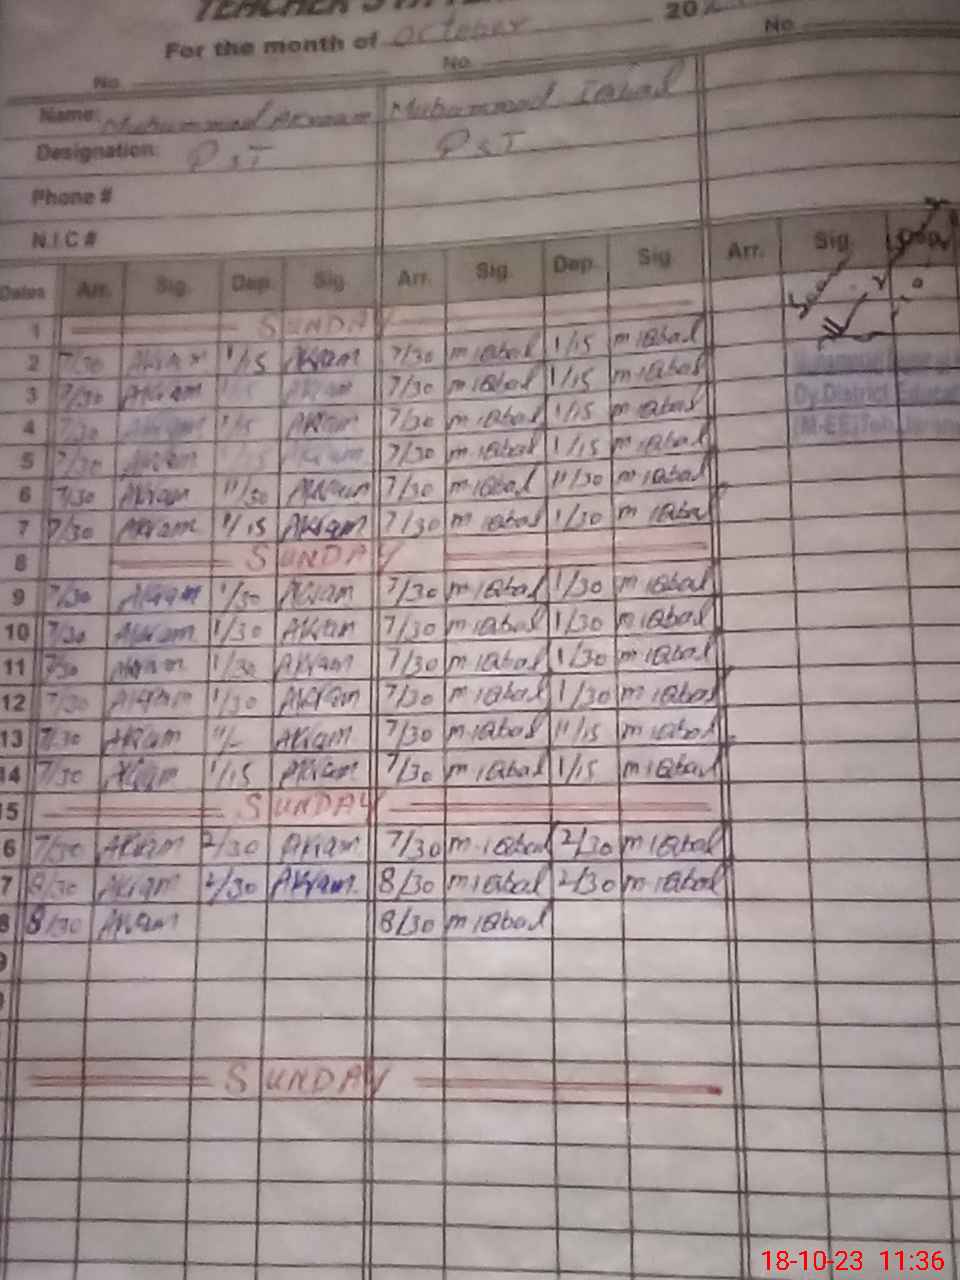 TEACHER'S
For the month of October 20
No. No. No.
Name: Muhammad Akram Muhammad Iqbal
Designation: PST PST
Phone #
N.I.C #
Dates Arr. Sig. Dep. Sig. Arr. Sig. Dep. Sig. Arr. Sig. Dep.
1 SUNDAY
2 7/30 Akram 1/15 Akram 7/30 m iqbal 1/15 m iqbal
3 7/30 Akram 1/15 Akram 7/30 m iqbal 1/15 m iqbal
Dy. District
4 7/30 Akram 1/15 Akram 7/30 m iqbal 1/15 m iqbal
(M-EE)
5 7/30 Akram 1/15 Akram 7/30 m iqbal 1/15 m iqbal
6 7/30 Akram 11/30 Akram 7/30 m iqbal 11/30 m iqbal
7 7/30 Akram 1/15 Akram 7/30 m iqbal 1/30 m iqbal
8 SUNDAY
9 7/30 Akram 1/30 Akram 7/30 m iqbal 1/30 m iqbal
10 7/30 Akram 1/30 Akram 7/30 m iqbal 1/30 m iqbal
11 7/30 Akram 1/30 Akram 7/30 m iqbal 1/30 m iqbal
12 7/30 Akram 1/30 Akram 7/30 m iqbal 1/30 m iqbal
13 7/30 Akram 11/- Akram 7/30 m iqbal 11/15 m iqbal
14 7/30 Akram 1/15 Akram 7/30 m iqbal 1/15 m iqbal
5 SUNDAY
6 7/30 Akram 2/30 Akram 7/30 m iqbal 2/30 m iqbal
7 8/30 Akram 2/30 Akram 8/30 m iqbal 2/30 m iqbal
8 8/30 Akram 8/30 m iqbal
9
SUNDAY
18-10-23 11:36